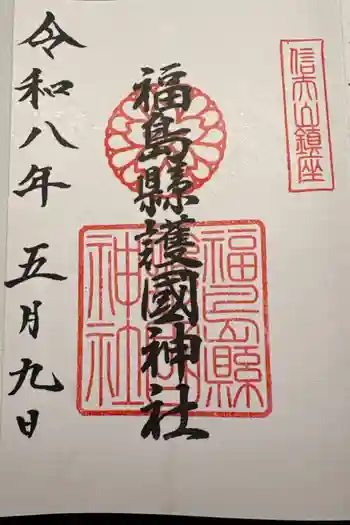 信夫山鎮座
福島縣護國神社
福島縣護國神社
令和八年 五月九日